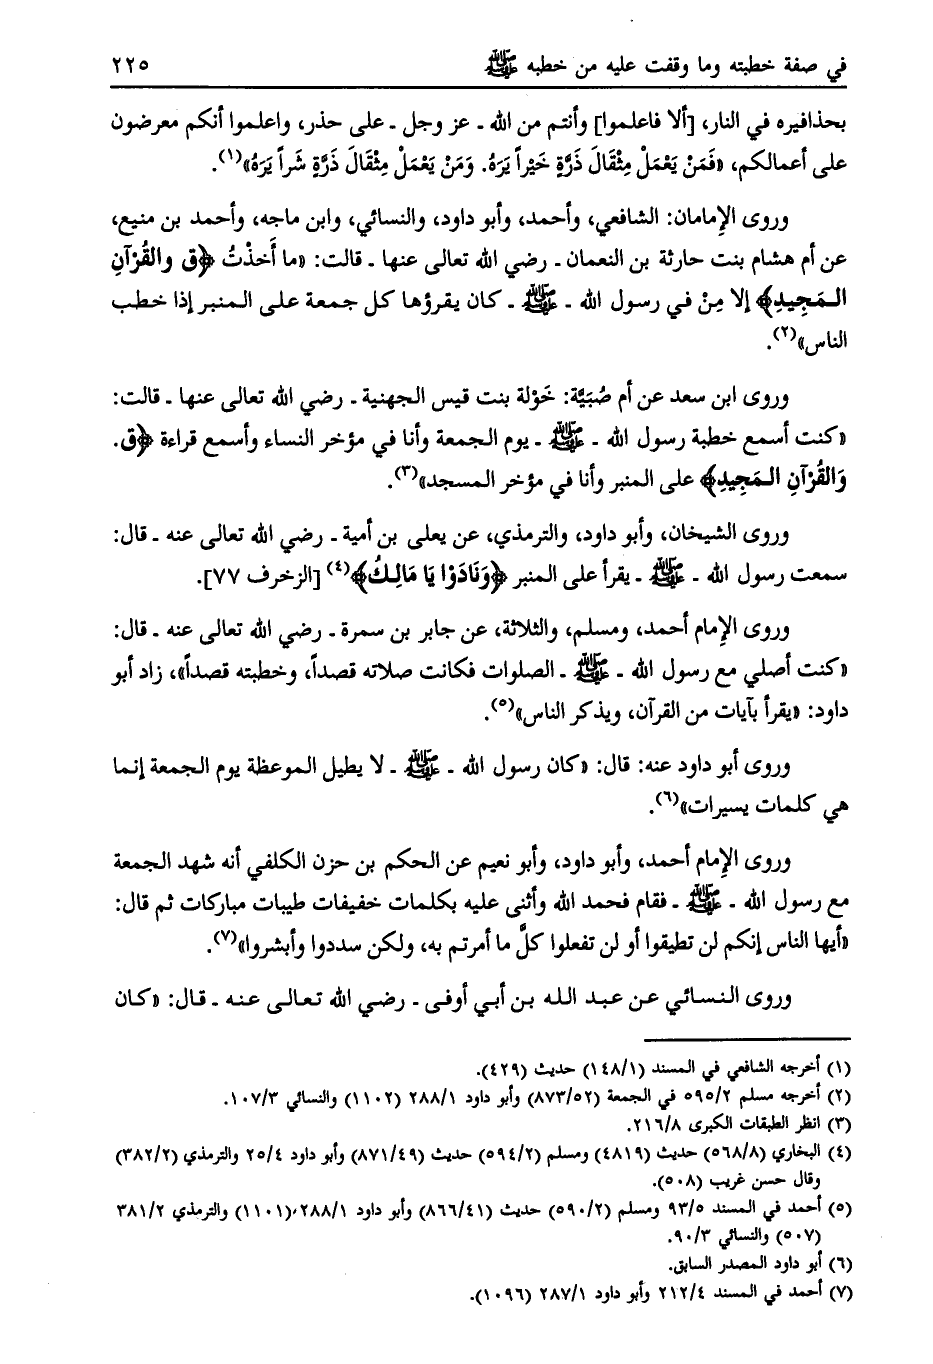 في صفة خطبته وما وقفت عليه من خطبه ﷺ ٢٢٥
بحذافيره في النار، [ألا فاعلموا] وأنتم من الله ـ عز وجل ـ على حذر، واعلموا أنكم معرضون
على أعمالكم، «فَمَنْ يَعْمَلْ مِثْقَالَ ذَرَّةٍ خَيْراً يَرَهُ. وَمَنْ يَعْمَلْ مِثْقَالَ ذَرَّةٍ شَراً يَرَهُ»(١).
وروى الإمامان: الشافعي، وأحمد، وأبو داود، والنسائي، وابن ماجه، وأحمد بن منيع،
عن أم هشام بنت حارثة بن النعمان ـ رضي الله تعالى عنها ـ قالت: «ما أَخذْتُ ﴿ق والقُرْآنِ
المَجِيدِ﴾ إلا مِنْ في رسول الله ـ ﷺ ـ كان يقرؤها كل جمعة على المنبر إذا خطب
الناس»(٢).
وروى ابن سعد عن أم صُبَيَّة: خَوْلة بنت قيس الجهنية ـ رضي الله تعالى عنها ـ قالت:
«كنت أسمع خطبة رسول الله ـ ﷺ ـ يوم الجمعة وأنا في مؤخر النساء وأسمع قراءة ﴿ق.
وَالقُرْآنِ المَجِيدِ﴾ على المنبر وأنا في مؤخر المسجد»(٣).
وروى الشيخان، وأبو داود، والترمذي، عن يعلى بن أمية ـ رضي الله تعالى عنه ـ قال:
سمعت رسول الله ـ ﷺ ـ يقرأ على المنبر ﴿وَنَادَوْا يَا مَالِكُ﴾(٤) [الزخرف ٧٧].
وروى الإمام أحمد، ومسلم، والثلاثة، عن جابر بن سمرة ـ رضي الله تعالى عنه ـ قال:
«كنت أصلي مع رسول الله ـ ﷺ ـ الصلوات فكانت صلاته قصداً، وخطبته قصداً»، زاد أبو
داود: «يقرأ بآيات من القرآن، ويذكر الناس»(٥).
وروى أبو داود عنه: قال: «كان رسول الله ـ ﷺ ـ لا يطيل الموعظة يوم الجمعة إنما
هي كلمات يسيرات»(٦).
وروى الإمام أحمد، وأبو داود، وأبو نعيم عن الحكم بن حزن الكلفي أنه شهد الجمعة
مع رسول الله ـ ﷺ ـ فقام فحمد الله وأثنى عليه بكلمات خفيفات طيبات مباركات ثم قال:
«أيها الناس إنكم لن تطيقوا أو لن تفعلوا كلَّ ما أمرتم به، ولكن سددوا وأبشروا»(٧).
وروى النسائي عن عبد الله بن أبي أوفى ـ رضي الله تعالى عنه ـ قال: «كان
(١) أخرجه الشافعي في المسند (١٤٨/١) حديث (٤٢٩).
(٢) أخرجه مسلم ٥٩٥/٢ في الجمعة (٨٧٣/٥٢) وأبو داود ٢٨٨/١ (١١٠٢) والنسائي ١٠٧/٣.
(٣) انظر الطبقات الكبرى ٢١٦/٨.
(٤) البخاري (٥٦٨/٨) حديث (٤٨١٩) ومسلم (٥٩٤/٢) حديث (٨٧١/٤٩) وأبو داود ٢٥/٤ والترمذي (٣٨٢/٢)
وقال حسن غريب (٥٠٨).
(٥) أحمد في المسند ٩٣/٥ ومسلم (٥٩٠/٢) حديث (٨٦٦/٤١) وأبو داود ٢٨٨/١،(١١٠١) والترمذي ٣٨١/٢
(٥٠٧) والنسائي ٩٠/٣.
(٦) أبو داود المصدر السابق.
(٧) أحمد في المسند ٢١٢/٤ وأبو داود ٢٨٧/١ (١٠٩٦).